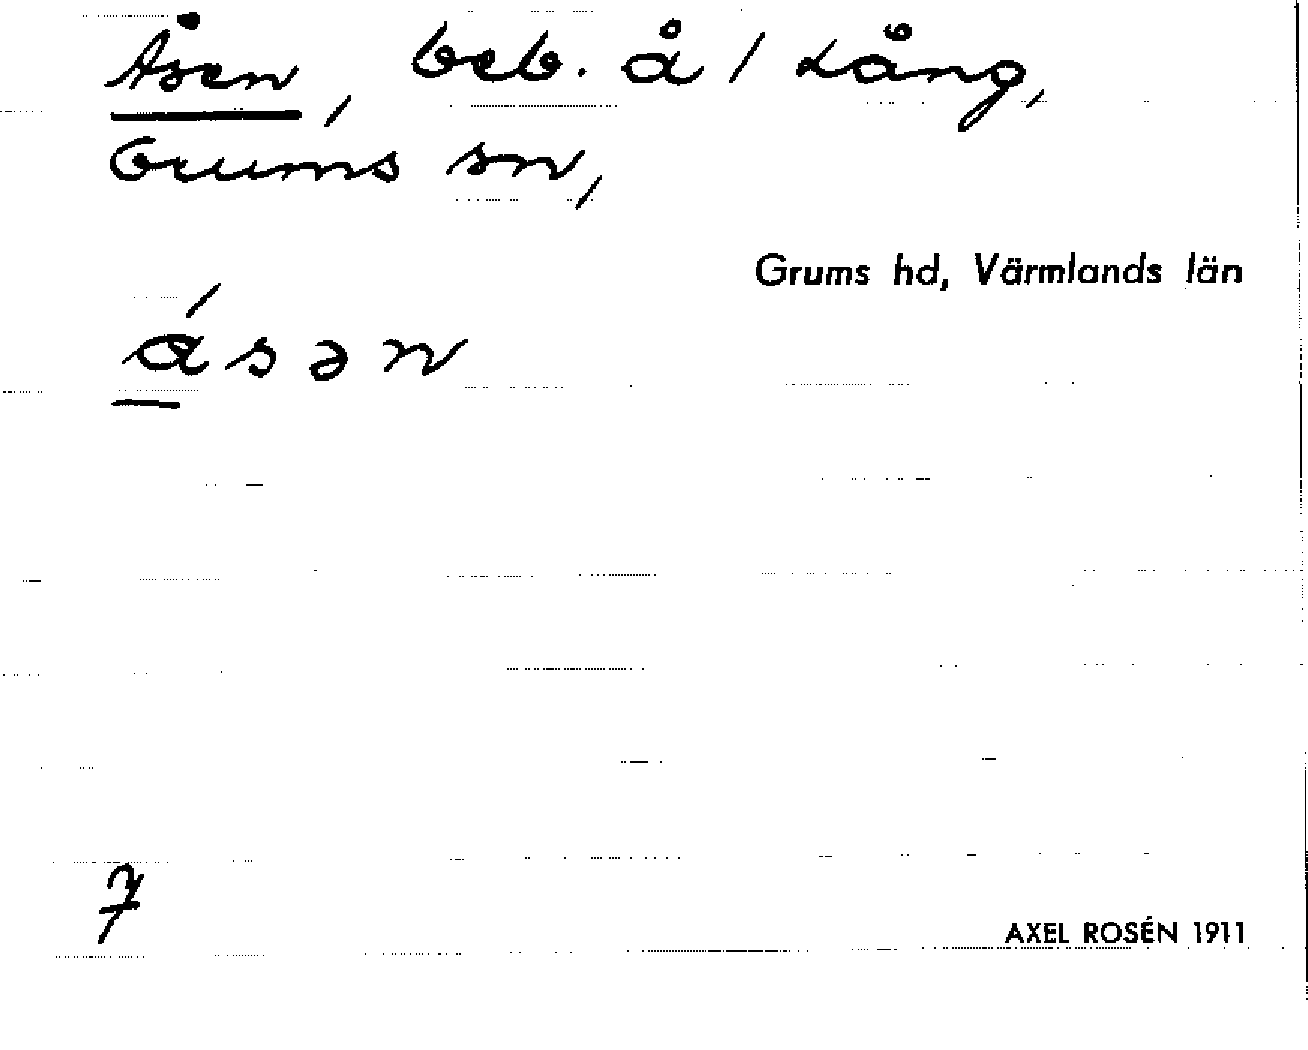 Åsen, beb. å 1 Lång,
Grums sn,
Grums hd, Värmlands län
ásən
7
AXEL ROSÉN 1911